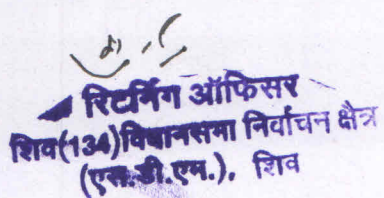 रिटर्निग ऑफिसर
शिव(134)विधानसभा निर्वाचन क्षैत्र
(एस.डी.एम.), शिव